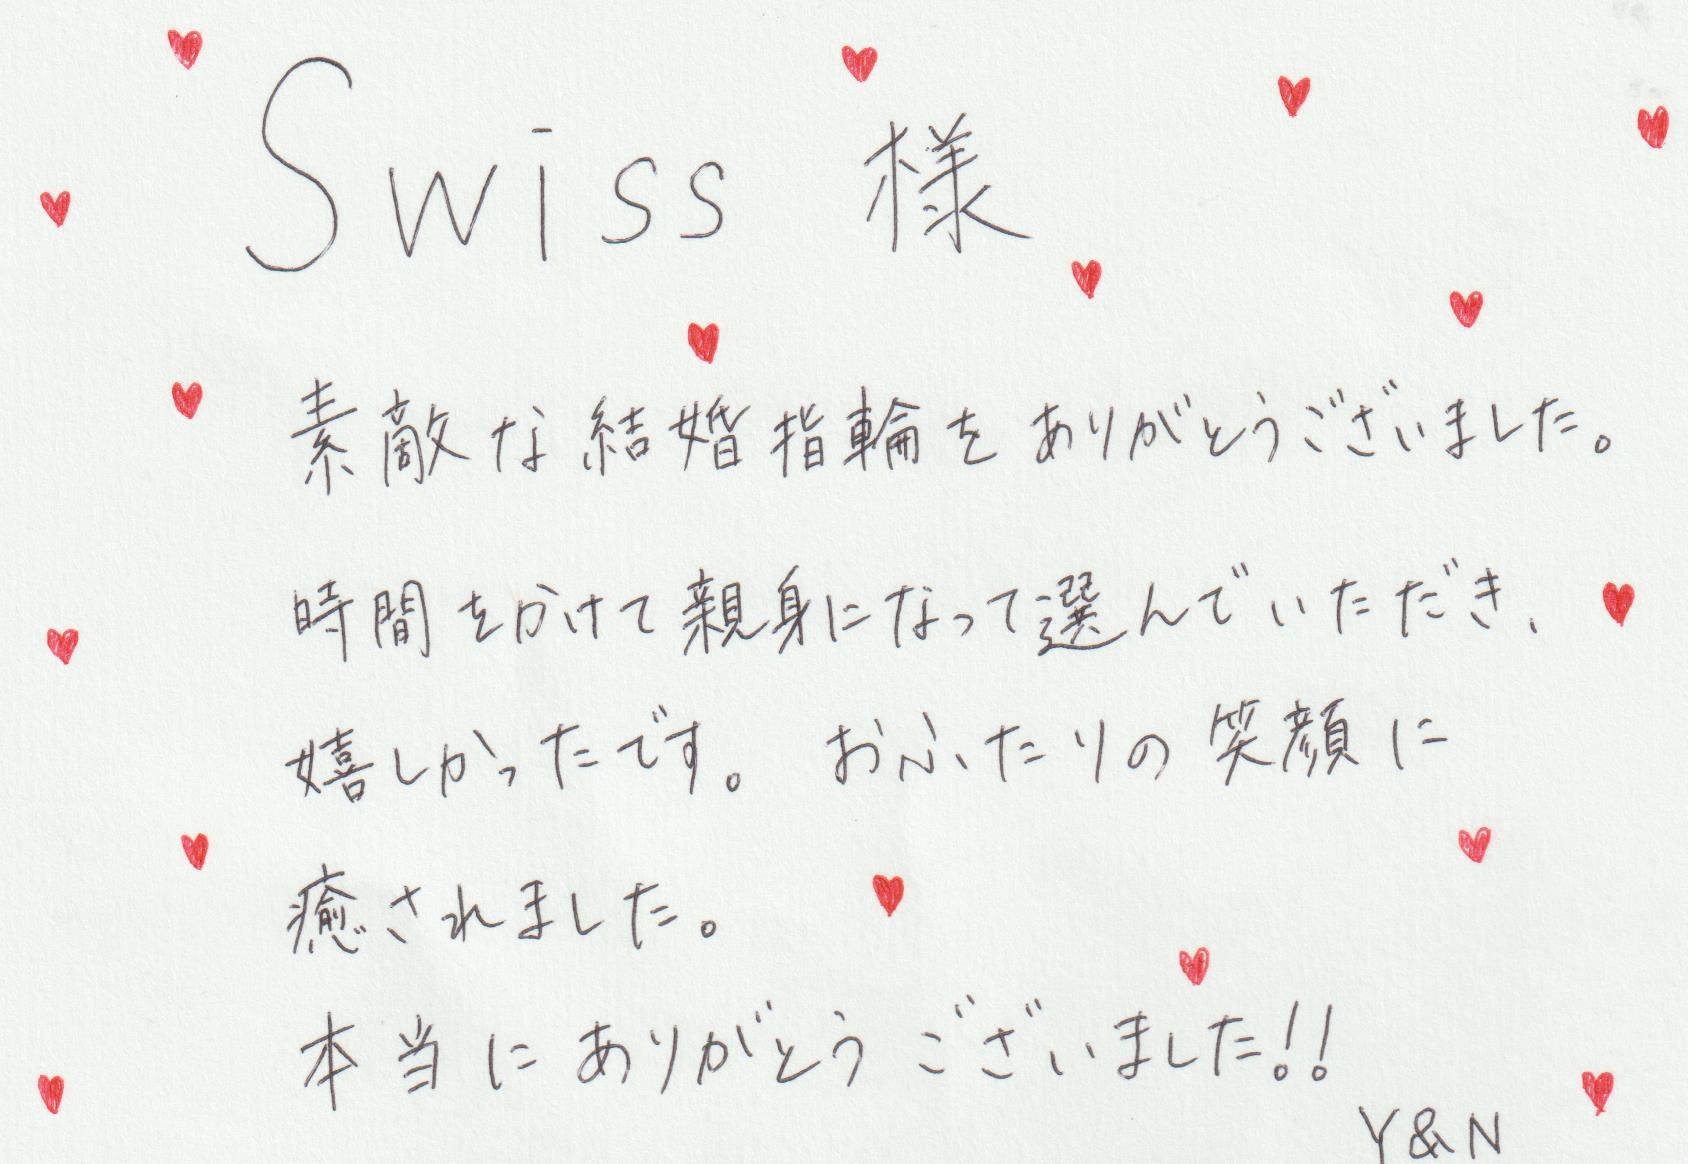 Swiss 様
素敵な結婚指輪をありがとうございました。
時間をかけて親身になって選んでいただき、
嬉しかったです。 おふたりの笑顔に
癒されました。
本当にありがとうございました!!
Y&N